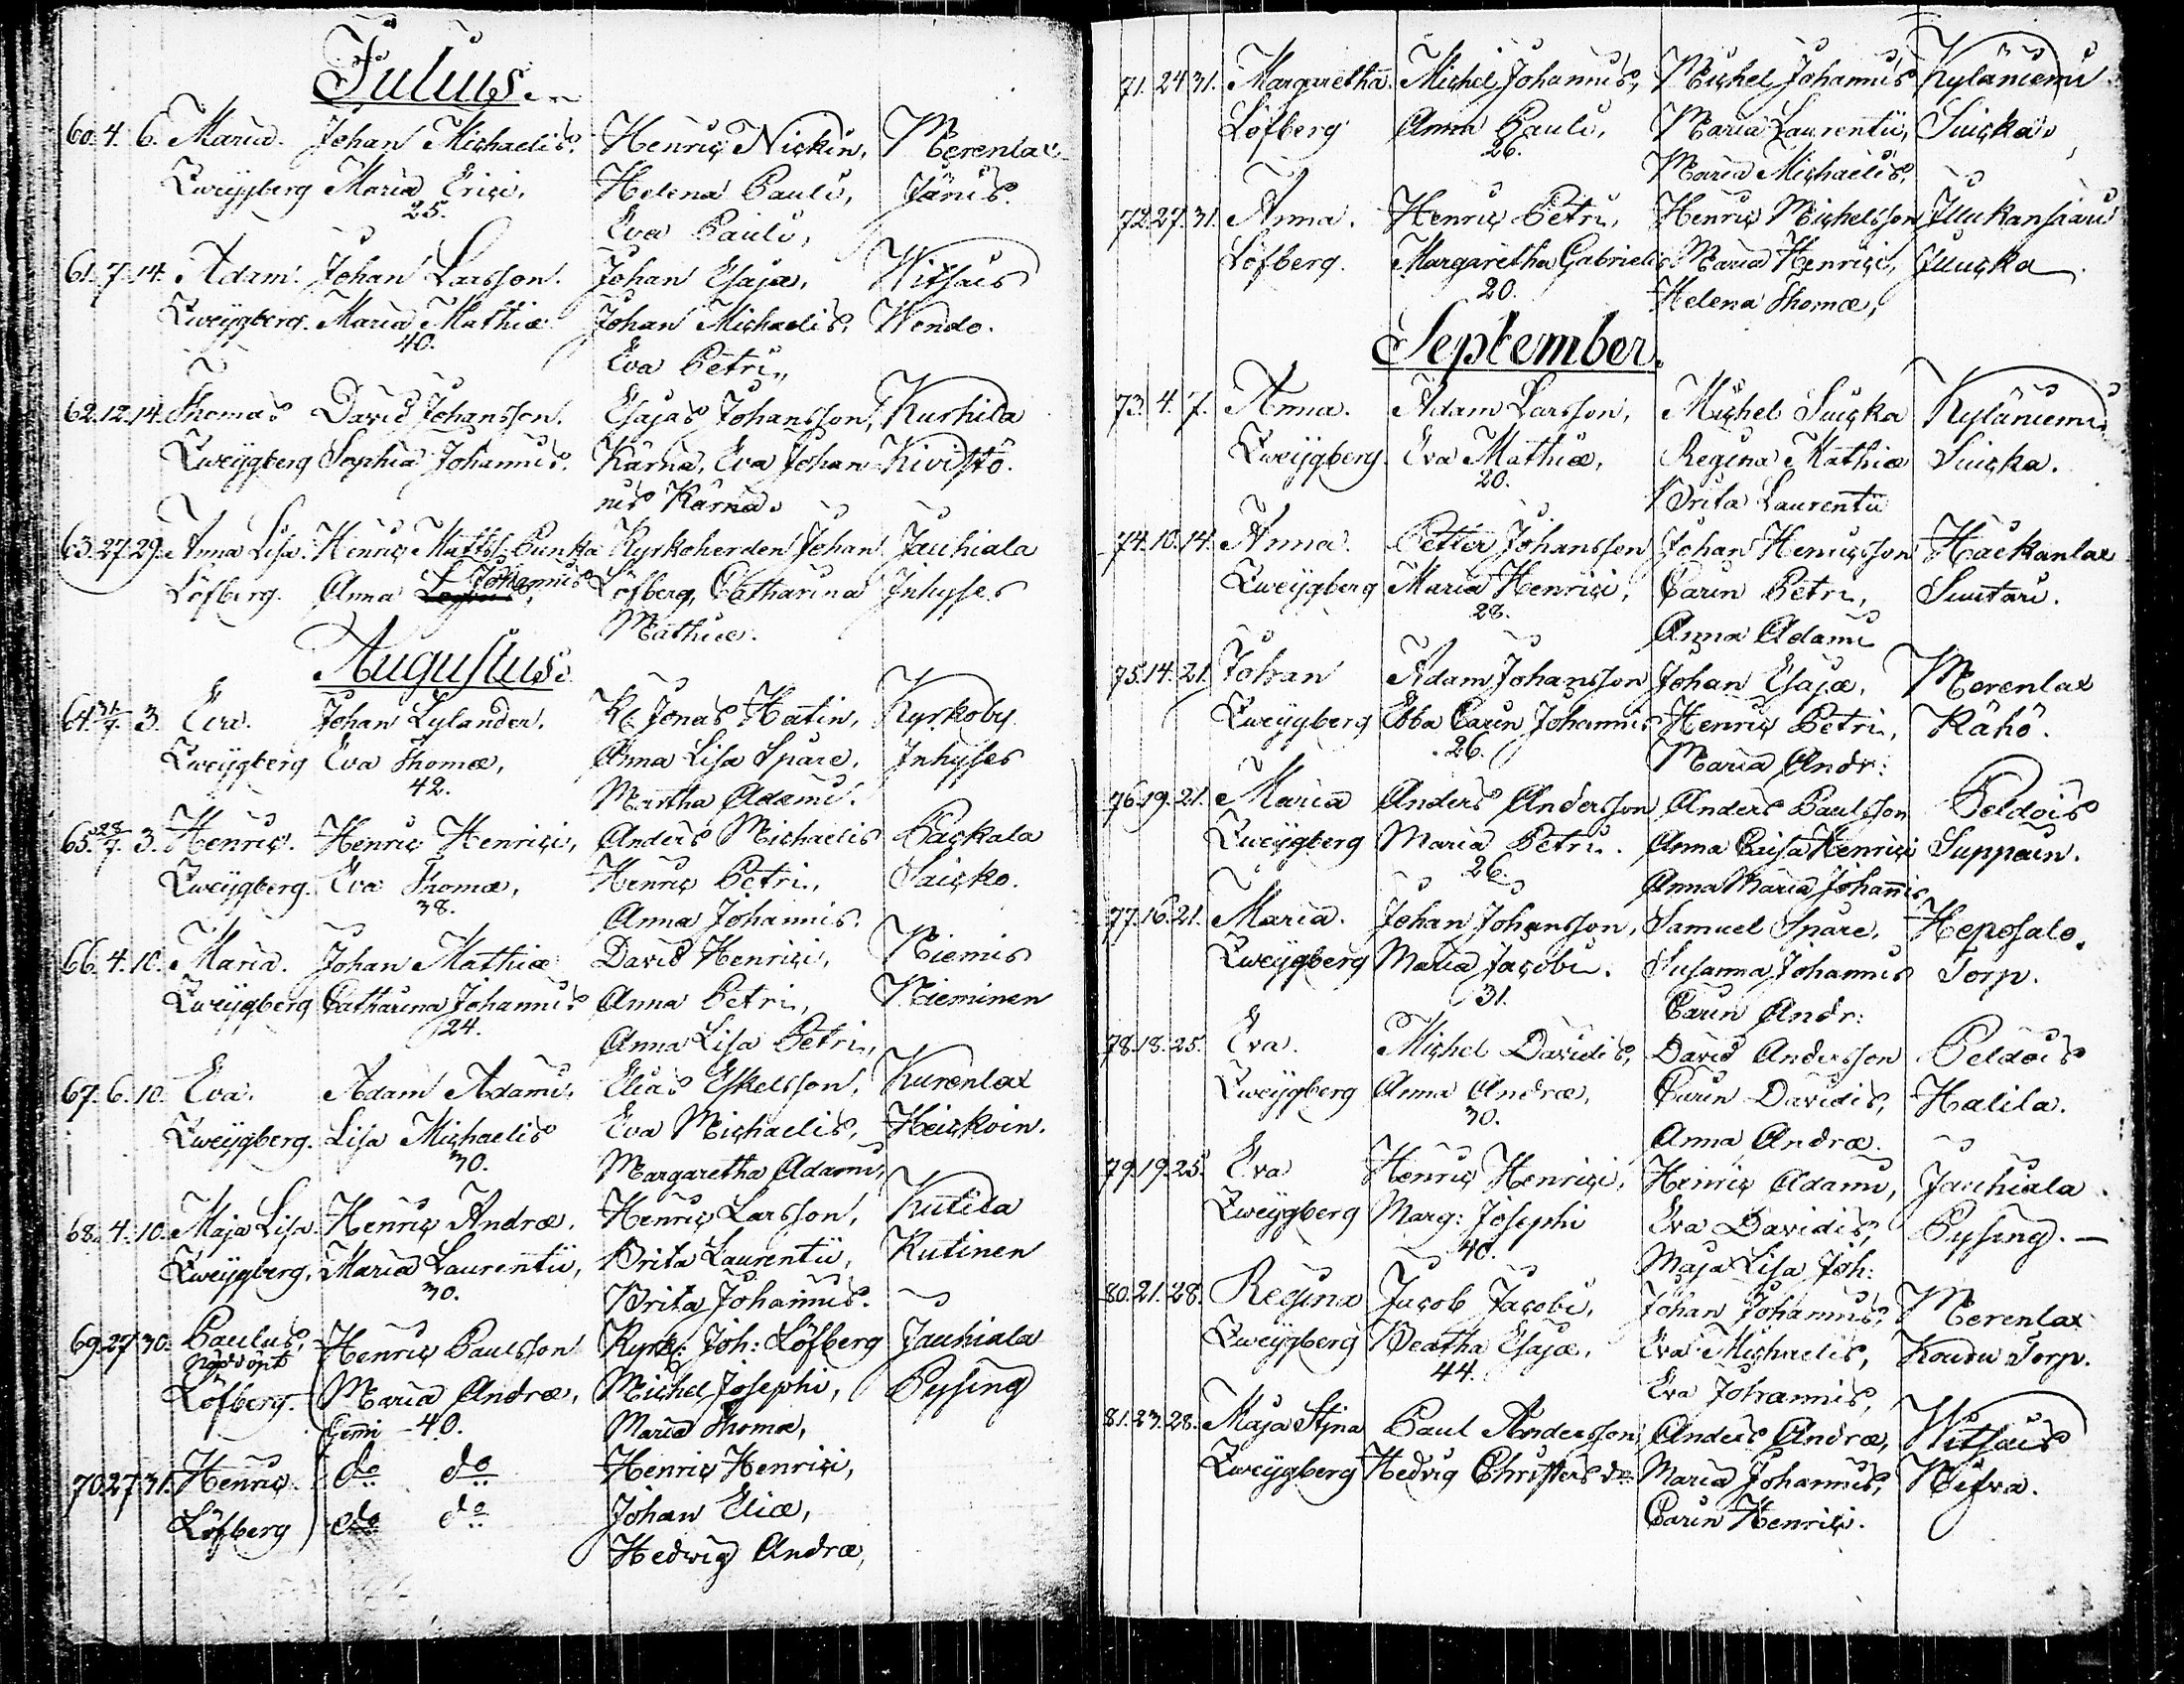 Julius.
60. 4. 6. Maria. Johan Michaelis. Henric Nickin, Merenlax
Zweÿgberg Maria Erici, Helena Pauli, Jänis.
25. Eva Pauli,
61. 7. 14. Adam. Johan Larsson. Johan Esajæ, Witsais
Zweÿgberg. Maria Mathiæ Johan Michaelis, Wendo.
40. Eva Petri,
62. 12. 14. Thomas David Johansson. Esajas Johansson, Kurhila
Zweÿgberg Sophia Johannis. Kärnä, Eva Johan- Kivistö.
nis Kärnä.
63. 27. 29. Anna Lisa. Henric Matts. Punka Kyrkoherden Johan Jauhiala
Löfberg. Anna Johannis Löfberg, Catharina Inhyses
Mathiæ.
Augustus.
64. 31/7. 3. Eva. Johan Lylander. Kl. Jonas Hatin, Kyrkoby
Zweÿgberg Eva Thomæ, Anna Lisa Spare, Inhyses
42. Martha Adami.
65. 28/7. 3. Henric. Henric Henrici, Anders Michaelis Packala
Zweÿgberg. Eva Thomæ, Henric Petri, Saicko.
38. Anna Johannis.
66. 4. 10. Maria. Johan Mathiæ David Henrici, Niemis
Zweÿgberg Catharina Johannis Anna Petri, Nieminen
24. Anna Lisa Petri,
67. 6. 10. Eva. Adam Adami. Elias Eskelsson, Kurenlax
Zweÿgberg. Lisa Michaelis Eva Michaelis, Heickoin.
30. Margaretha Adami,
68. 4. 10. Maja Lisa. Henric Andræ. Henric Larsson, Kutila
Zweÿgberg. Maria Laurentii, Brita Laurentii, Kutinen
30. Brita Johannis.
69. 27 30. Paulus, Henric Paulsson Kyrk: Joh: Löfberg Jauhiala
nöddöpt
Löfberg. Maria Andræ, Michel Josephi, Pysing
Gemi - 40. Maria Thomæ,
70. 27 31. Henric. do do Henric Henrici,
Löfberg do do Johan Eliæ,
Hedwig Andræ,
71. 24 31. Margaretha. Michel Johannis, Michel Johannis Kyläniemi
Löfberg Anna Pauli, Maria Laurentii, Suicka.
26. Maria Michaelis,
72. 27. 31. Anna. Henric Petri, Henric Michelsson Illukansaari
Löfberg. Margaretha Gabrielis Maria Henrici, Illucka.
20. Helena Thomæ,
September.
73. 4. 7. Anna. Adam Larsson, Michel Suicka Kyläniemi
Zweÿgberg. Eva Mathiæ, Regina Mathiæ Suicka.
20. Brita Laurentii
74. 10. 14. Anna. Petter Johansson Johan Henricsson Häckanlax
Zweÿgberg Maria Henrici, Carin Petri, Suutari.
28. Anna Adami
75. 14. 21. Johan Adam Johansson Johan Esajæ, Merenlax
Zweÿgberg Ebba Carin Johannis Henric Petri, Kähö.
26. Maria Andr:
76. 19. 21. Maria Anders Andersson Anders Paulsson Peldois
Zweÿgberg Maria Petri. Anna Caisa Henrici Suppoin.
26. Anna Maria Johannis
77. 16. 21. Maria. Johan Johansson, Samuel Spare, Heposalo.
Zweÿgberg Maria Jacobi. Susanna Johannis Torp.
31. Carin Andr:
78. 18. 25. Eva. Michel Davidis, David Andersson Peldois
Zweÿgberg Anna Andræ, Carin Davidis, Halila.
30. Anna Andræ.
79. 19. 25. Eva Henric Henrici, Heinric Adami, Jauhiala.
Zweÿgberg Marg: Josephi Eva Davidis, Pysing.
40. Maja Lisa Joh:
80. 21. 28. Regina Jacob Jacobi, Johan Johannis, Merenlax
Zweÿgberg Beatha Esajæ. Eva Michaelis, Koudu Torp.
44. Eva Johannis,
81. 23. 28. Maja Stjna Paul Andersson Anders Andræ, Witsais
Zweÿgberg Hedvig Christersdr. Maria Johannis, Nifva.
Carin Henrici.